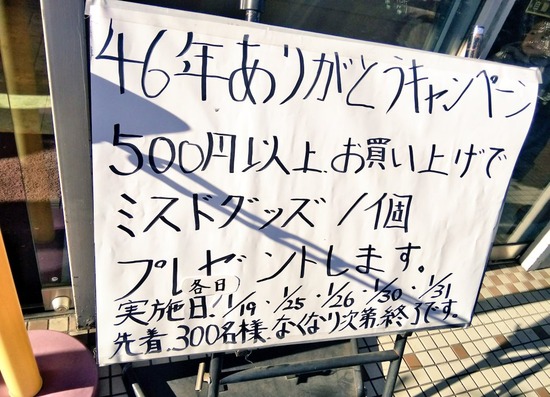 46年ありがとうキャンペーン
500円以上.お買い上げで
ミスドグッズ1個
プレゼントします.
(各日)
実施日.1/19・1/25・1/26・1/30・1/31
先着.300名様.なくなり次第.終了です.